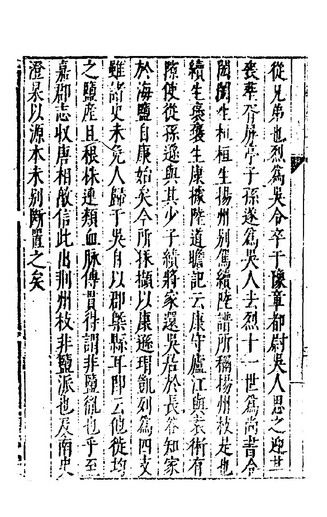 從兄弟也烈爲吳令卒于豫章都尉吳人思之迎其
喪葬胥屏亭子孫遂爲吳人去烈十一世爲尚書令
閎閎生桓桓生揚州別駕續陸譜所稱揚州枝是也
續生襃襃生康據陸道瞻記云康守廬江與袁術有
隙使從孫遜與其少子績將家還吳居於長谷知家
於海鹽自康始矣今所採擷以康遜瑁凱列爲四支
雖諸史未免人歸于吳自以郡槩縣耳即云他徙均
之鹽產且根株連類血脉傳貫得謂非鹽徹也乎至
嘉郡志収唐相敵信此出荆州枝非鹽派也及南史
澄杲以源本未別斷置之矣